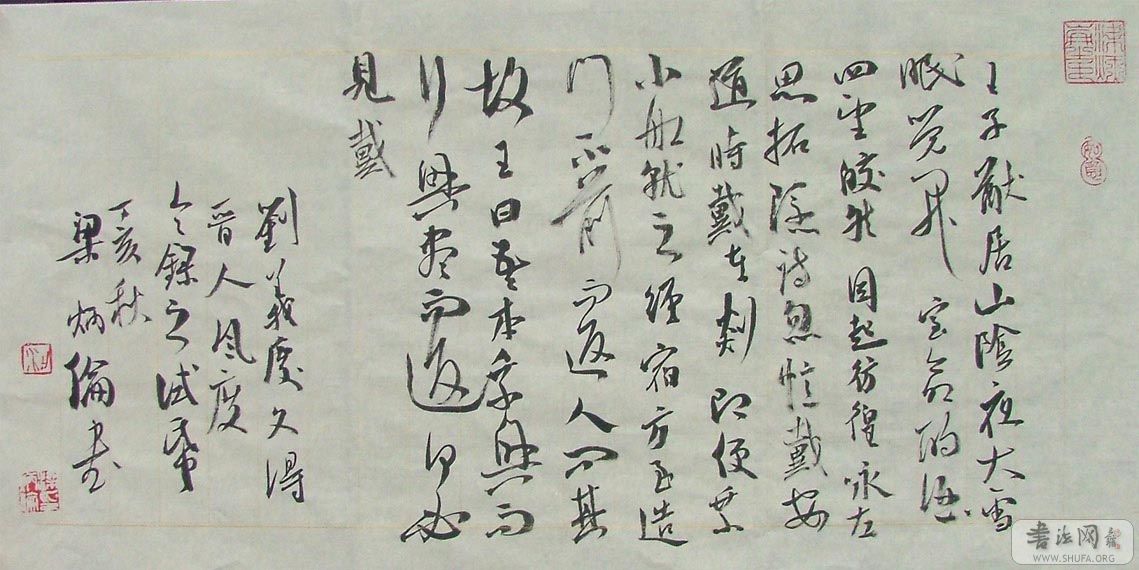 王子猷居山陰夜大雪
眠觉開室命酌酒
四望皎然因起彷徨咏左
思招隱詩忽憶戴安
道時戴在剡即便乘
小船就之經宿方至造
門不前而返人問其
故王曰吾本乘興而
行興盡而返何必
見戴
劉義慶文得
晉人風度
今錄之試帋
丁亥秋
梁炳倫書
书法网
WWW.SHUFA.ORG